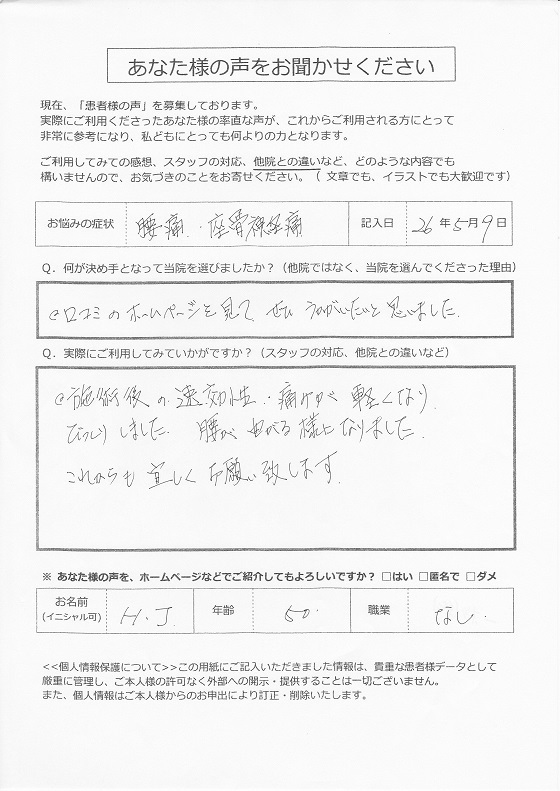 あなた様の声をお聞かせください
現在、「患者様の声」を募集しております。
実際にご利用くださったあなた様の率直な声が、これからご利用される方にとって
非常に参考になり、私どもにとっても何よりの力となります。
ご利用してみての感想、スタッフの対応、他院との違いなど、どのような内容でも
構いませんので、お気づきのことをお寄せください。（ 文章でも、イラストでも大歓迎です）
お悩みの症状 腰痛・座骨神経痛 記入日 26年5月9日
Q．何が決め手となって当院を選びましたか？（他院ではなく、当院を選んでくださった理由）
@口コミのホームページを見て ぜひ うかがいたいと思いました.
Q．実際にご利用してみていかがですか？（スタッフの対応、他院との違いなど）
@施術後の速効性・痛みが軽くなり
びっくりしました. 腰が曲がる様になりました.
これからも宜しくお願い致します.
※ あなた様の声を、ホームページなどでご紹介してもよろしいですか？ □はい □匿名で □ダメ
お名前 H.J. 年齢 50. 職業 なし.
(イニシャル可)
<<個人情報保護について>>この用紙にご記入いただきました情報は、貴重な患者様データとして
厳重に管理し、ご本人様の許可なく外部への開示・提供することは一切ございません。
また、個人情報はご本人様からのお申出により訂正・削除いたします。